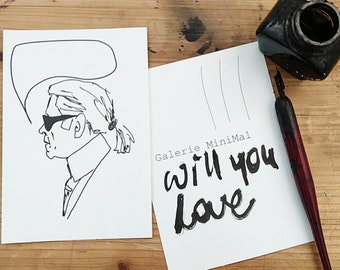 Galerie MiniMal
will you
love